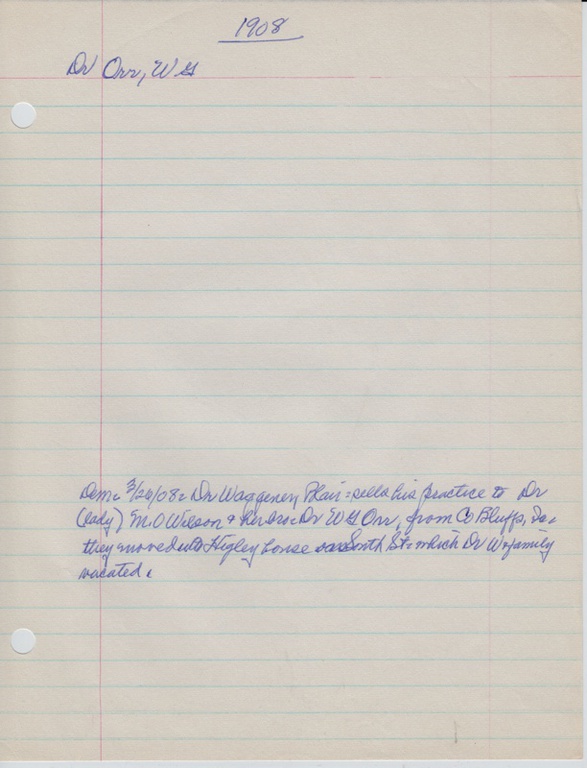 1908
Dr Orr, W G
Dem = 3/26/08 = Dr Waggener, Blair = sells his practice to Dr
(lady) M.O Wilson & her Dr W G Orr, from Co Bluffs, Ia =
they moved into Higley house on South St = which Dr W & family
vacated.